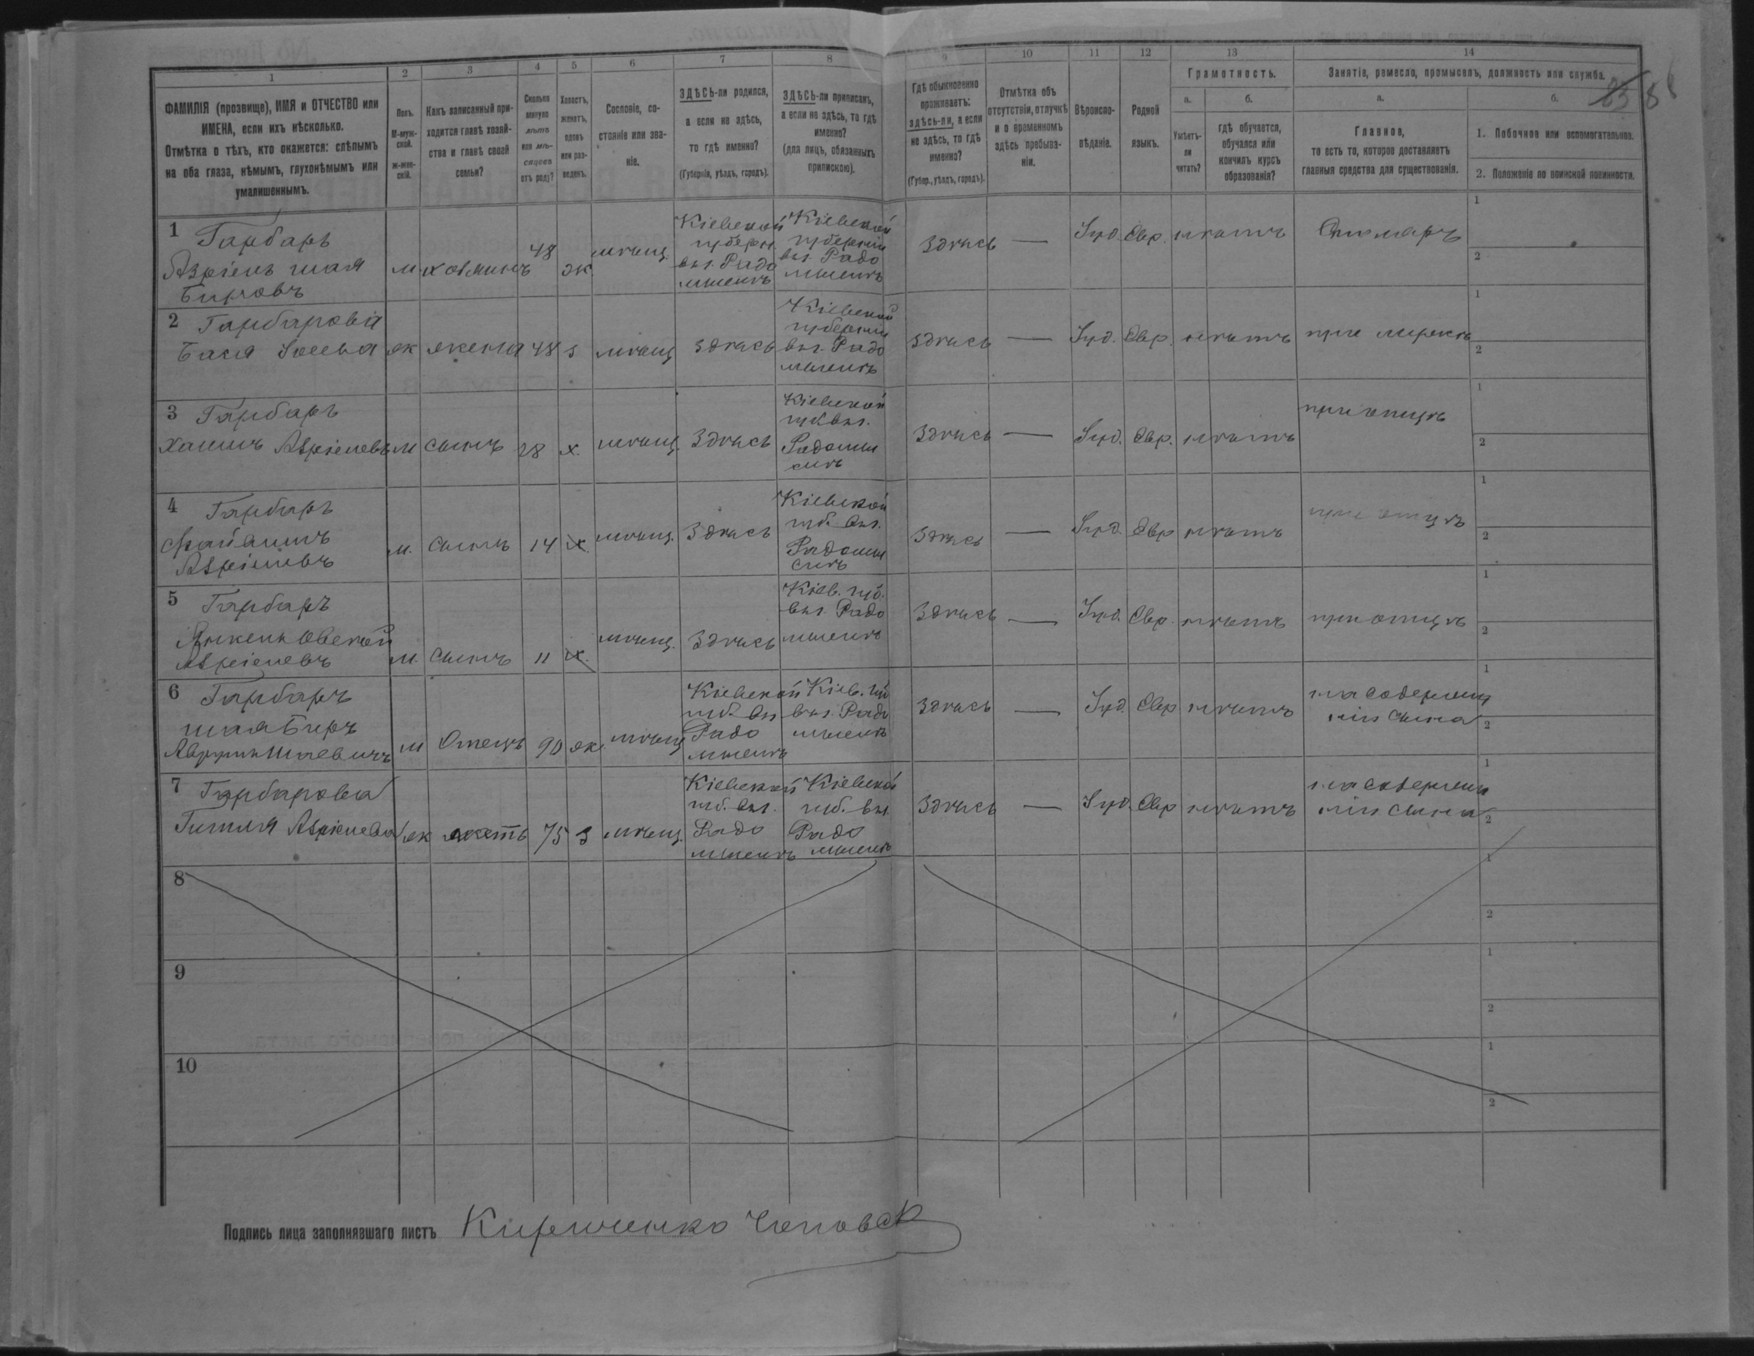 1 2 3 4 5 6 7 8 9 10 11 12 13 14
ФАМИЛІЯ (прозвище), ИМЯ и ОТЧЕСТВО или
ИМЕНА, если ихъ нѣсколько.
Отмѣтка о тѣхъ, кто окажется: слѣпымъ
на оба глаза, нѣмымъ, глухонѣмымъ или
умалишеннымъ.
Полъ.
М-муж-
ской.
ж-жен-
скій.
Какъ записанный при-
ходится главѣ хозяй-
ства и главѣ своей
семьи?
Сколько
минуло
лѣтъ
или мѣ-
сяцевъ
отъ роду?
Холостъ,
женатъ,
вдовъ
или раз-
веденъ.
Сословіе, со-
стояніе или зва-
ніе.
ЗДѢСЬ-ли родился,
а если не здѣсь,
то гдѣ именно?
(Губернія, уѣздъ, городъ).
ЗДѢСЬ-ли приписанъ,
а если не здѣсь, то гдѣ
именно?
(для лицъ, обязанныхъ
припискою).
Гдѣ обыкновенно
проживаетъ:
здѣсь-ли, а если
не здѣсь, то гдѣ
именно?
(Губер., уѣздъ, городъ).
Отмѣтка объ
отсутствіи, отлучкѣ
и о временномъ
здѣсь пребыва-
ніи.
Вѣроиспо-
вѣданіе.
Родной
языкъ.
Грамотность.
а.
Умѣетъ-
ли
читать?
б.
гдѣ обучается,
обучался или
кончилъ курсъ
образованія?
Занятія, ремесло, промыселъ, должность или служба.
85
а.
Главное,
то есть то, которое доставляетъ
главныя средства для существованія.
б.
1. Побочное или вспомогательное.
2. Положеніе по воинской повинности.
1 Гарбаръ
Азріель шая
м хозяинъ 48 ж. мѣщ.
Кіевской
губерн.
вм. Радо
мыслѣ
Кіевской
губерніи
вм. Радо
мыслѣ
Здѣсь — Іуд. Евр. нѣтъ
1
2
2 Гарбарова
Бася
жк жена 48 з мѣщ. здѣсь
Кіевской
губерніи
вм. Радо
мыслѣ
здѣсь — Іуд. Евр. нѣтъ при мужѣ
1
2
3 Гарбаръ
Азріелевъ м сынъ 28 х мѣщ. Здѣсь
Кіевской
губ. вм.
Радомы
слѣ
Здѣсь — Іуд. Евр. нѣтъ при отцѣ
1
2
4 Гарбаръ
Азріелевъ
м. сынъ 14 х мѣщ. Здѣсь
Кіевской
губ. вм.
Радомы
слѣ
Здѣсь — Іуд. Евр нѣтъ при отцѣ
1
2
5 Гарбаръ
Азріелевъ
м. сынъ 11 х. мѣщ. Здѣсь
Кіев. губ.
вм. Радо
мыслѣ
Здѣсь — Іуд. Евр. нѣтъ при отцѣ
1
2
6 Гарбаръ
шая Беръ
м Отецъ 90 жк мѣщ
Кіевской
губ. вм
Радо
мыслѣ
Кіев. губ
вм. Радо
мыслѣ
Здѣсь — Іуд. Евр нѣтъ
на содержа
ніи сына
1
2
7 Гарбарова
Гитля Азріелева
жк мать 75 з мѣщ.
Кіевской
губ. вм.
Радо
мыслѣ
Кіевской
губ. вм
Радо
мыслѣ
Здѣсь — Іуд. Евр нѣтъ
на содержа
ніи сына
1
2
8
1
2
9
1
2
10
1
2
Подпись лица заполнявшаго листъ